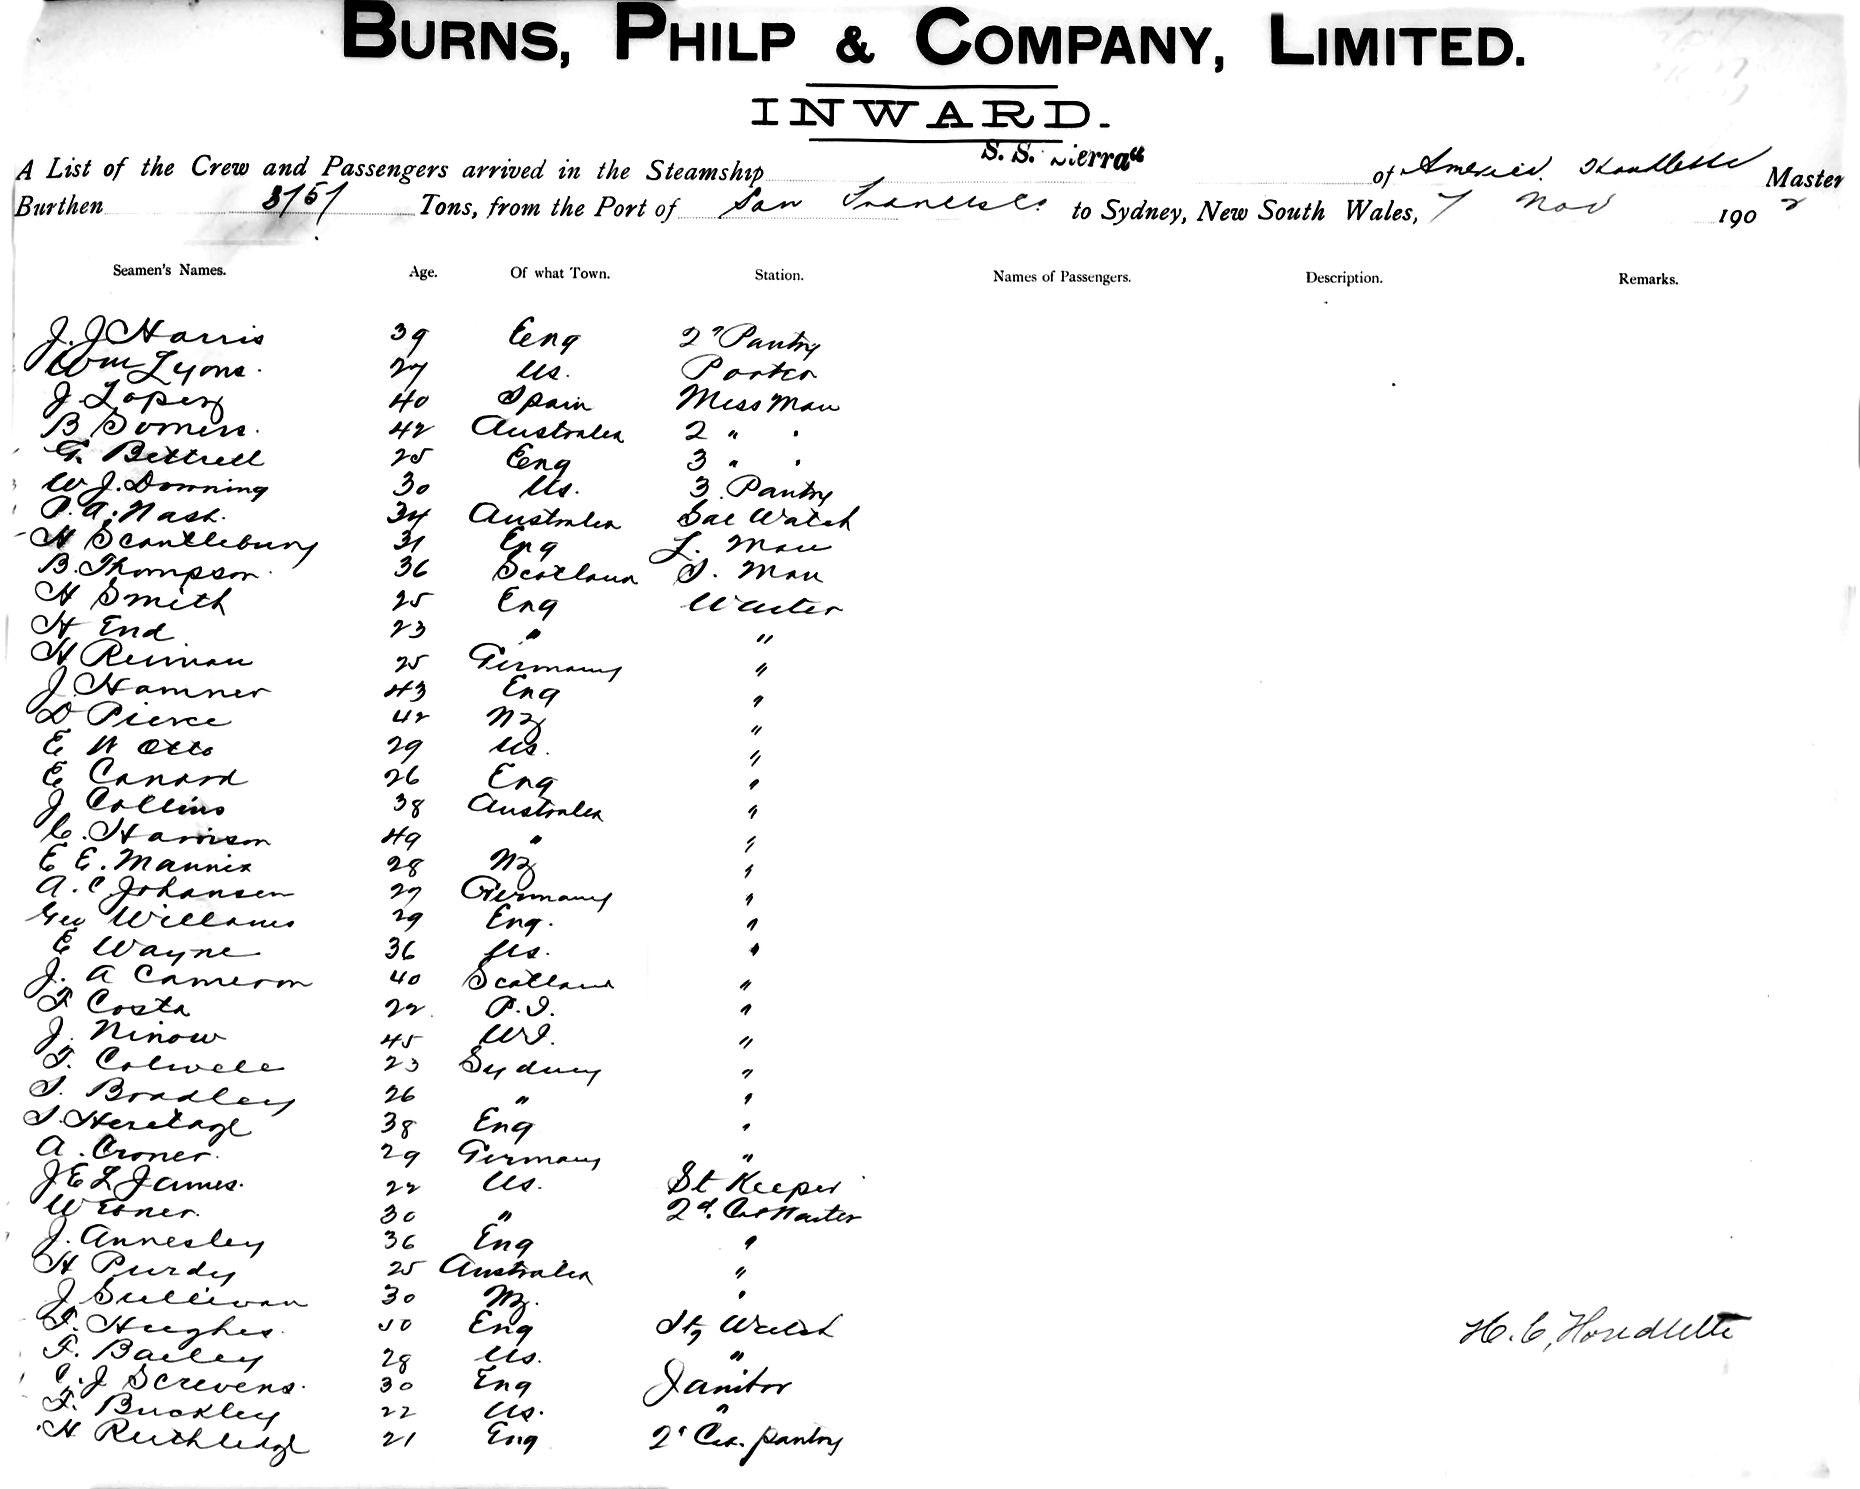 BURNS, PHILP & COMPANY, LIMITED.
INWARD.
A List of the Crew and Passengers arrived in the Steamship S. S. Sierra" of America. Houdlette Master
Burthen Tons, from the Port of San Francisco to Sydney, New South Wales, 7 Nov 1902
Seamen's Names. Age. Of what Town. Station. Names of Passengers. Description. Remarks.
J. J Harris 39 Eng 2" Pantry
Wm Lyons. 27 Us. Porter
J Lopez 40 Spain Mess Man
B Somers. 42 Australia 2 " "
G. Bettrell 25 Eng 3 " "
W J. Downing 30 Us. 3 Pantry
P. A. Nash. 34 Australia Sal Watch
H Scantlebury 31 Eng L. Man
B. Thompson. 36 Scotland S. Man
H Smith 25 Eng Waiter
H End 23 " "
H Reiman 25 Germany "
J. Hamner 43 Eng "
D Pierce 42 NZ "
E W Otto 29 Us. "
E Canard 26 Eng "
J Collins 38 Australia "
C. Harrison 49 " "
E E. Mannix 28 NZ "
A. C Johansen 27 Germany "
Geo Williams 29 Eng. "
E Wayne 36 Us. "
J. A Cameron 40 Scotland "
F Costa 22 P.I. "
J. Ninow 45 WI. "
F. Colwell 23 Sydney "
S. Bradley 26 " "
S. Heritage 38 Eng "
A. Croner. 29 Germany "
J E L James. 22 Us. St Keeper
W Ebner. 30 " 2d. Cab Waiter
J. Annesley 36 Eng "
H Purdy 25 Australia "
J Sullivan 30 NZ. "
F. Hughes. 50 Eng Stg Watch
F. Bailey 28 Us. "
C. J Screvens. 30 Eng Janitor
F. Buckley 22 Us. "
H Ruthledge 21 Eng 2" Cab. pantry
H. C. Houdlette